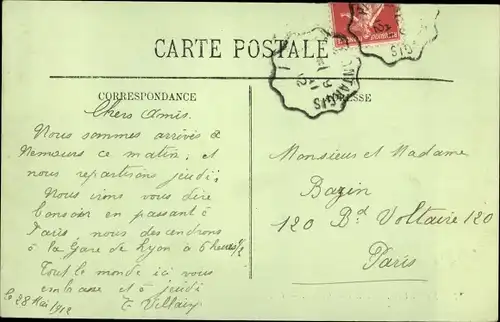 CARTE POSTALE
CORRESPONDANCE
Chers Amis.
Nous sommes arrivés à
Nemours ce matin, et
nous repartirons jeudi;
Nous irons vous dire
bonsoir en passant à
Paris, nous descendrons
à la Gare de Lyon à 6 heures 1/2
Tout le monde ici vous
embrasse et à jeudi
le 28 Mai 1912
ADRESSE
Monsieur et Madame
Bazin
120 Bd Voltaire 120
Paris
MONTARGIS